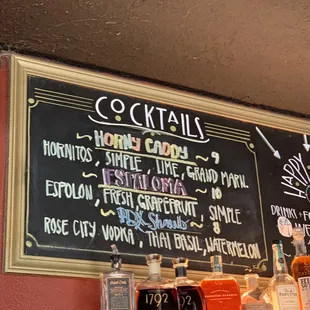 COCKTAILS
~HORNY CADDY~ 9
HORNITOS, SIMPLE, LIME, GRAND MARN.
~ESPALOMA~ 10
ESPOLON, FRESH GRAPEFRUIT, SIMPLE
~PDX Shandy~ 8
ROSE CITY VODKA, THAI BASIL, WATERMELON
HAPPY
DRINKS +
1792